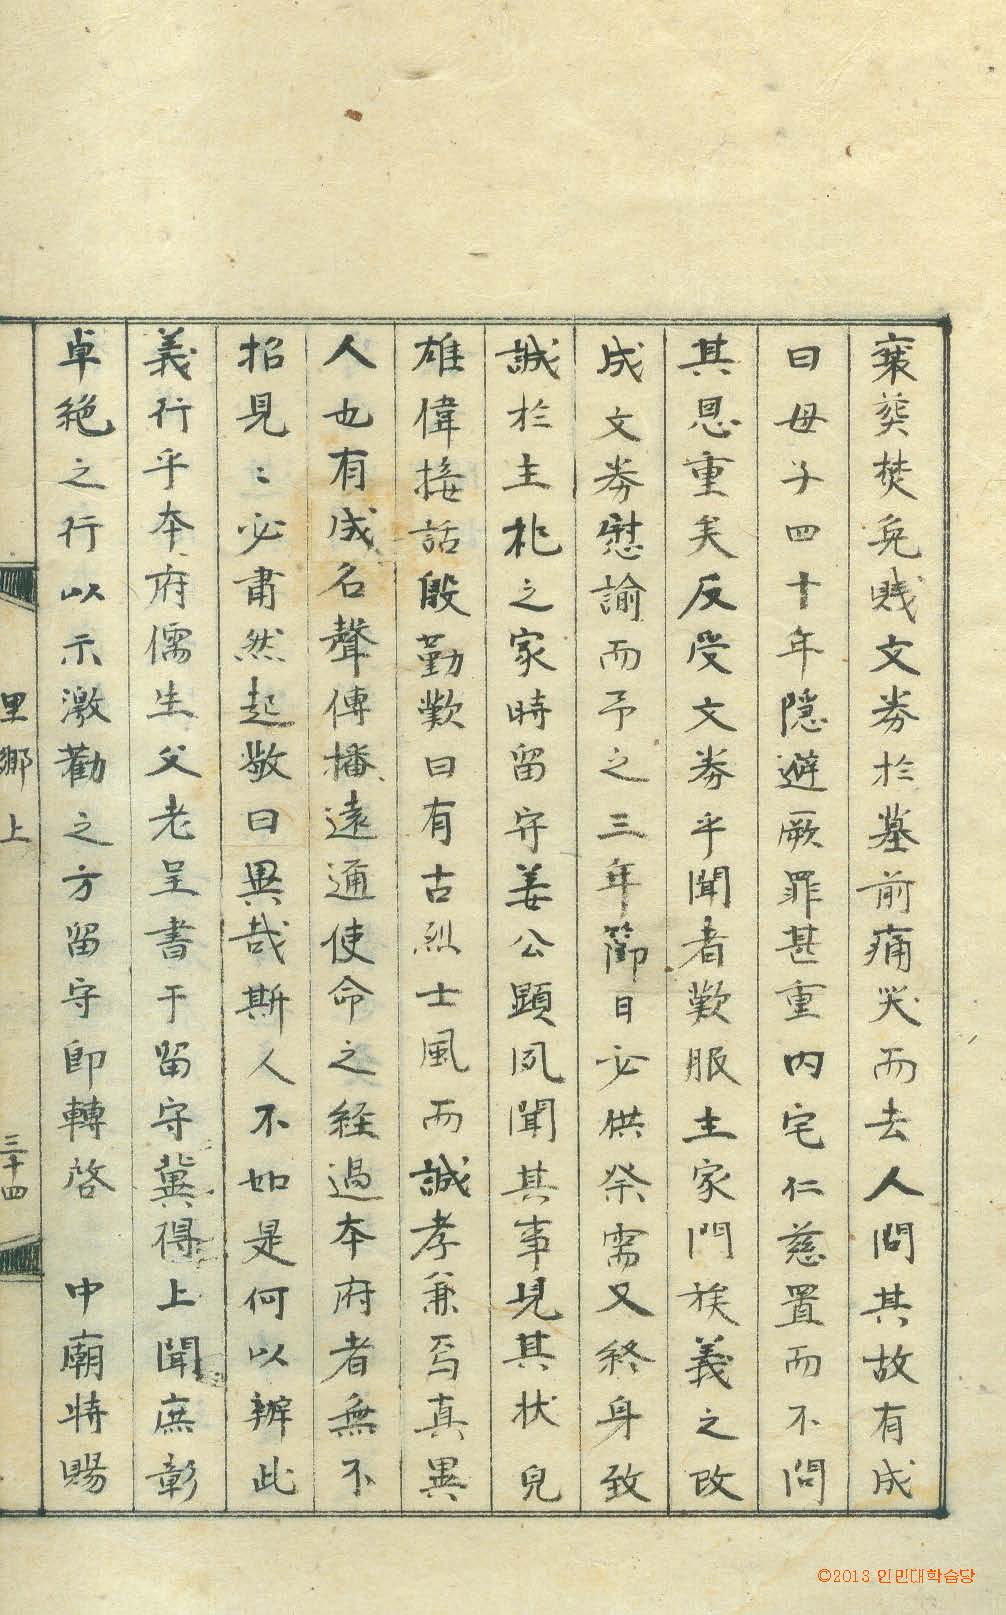 襄葬焚免賎文券於墓前痛哭而去人問其故有成
曰母子四十年隠避厥罪甚重内宅仁慈置而不問
其恩重矣反受文券乎聞者歎服主家門族義之改
成文券慰諭而予之三年節日必供祭需又終身致
誠於主祀之家時留守姜公顕夙聞其事見其状皃
雄偉接話殷勤歎曰有古烈士風而誠孝兼焉真異
人也有成名聲傳播遠通使命之経過本府者無不
招見〻必肅然起敬曰異哉斯人不如是何以辦此
義行乎本府儒生父老呈書于留守冀得上聞庶彰
卓絶之行以示激勸之方留守即轉啓　中廟特賜
里鄉上
三十四
©2013 인민대학습당